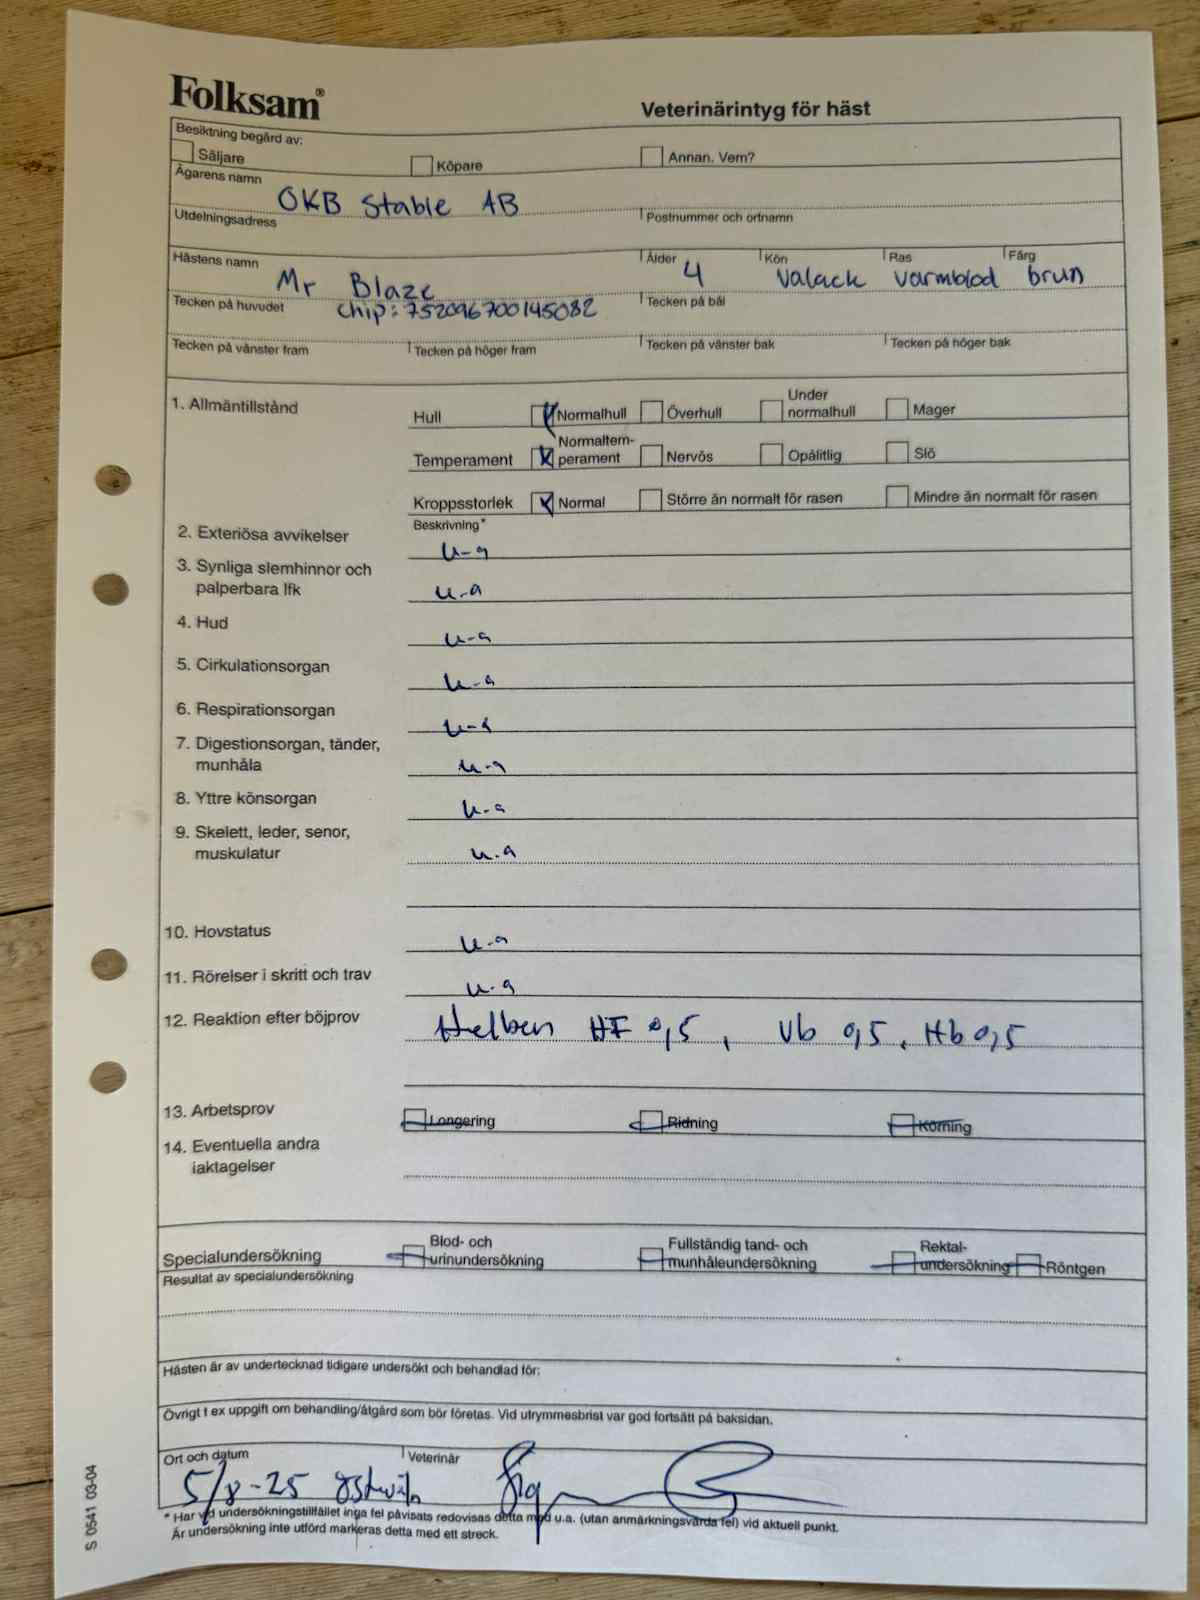 Folksam®
Veterinärintyg för häst
Besiktning begärd av:
Säljare Köpare Annan. Vem?
Ägarens namn
OKB Stable AB
Utdelningsadress Postnummer och ortnamn
Hästens namn Ålder Kön Ras Färg
Mr Blaze 4 Valack varmblod brun
Tecken på huvudet chip: 752096700145082 Tecken på bål
Tecken på vänster fram Tecken på höger fram Tecken på vänster bak Tecken på höger bak
1. Allmäntillstånd Hull Normalhull Överhull Under normalhull Mager
Temperament Normaltem-perament Nervös Opålitlig Slö
Kroppsstorlek Normal Större än normalt för rasen Mindre än normalt för rasen
Beskrivning*
2. Exteriösa avvikelser u-a
3. Synliga slemhinnor och
palperbara lfk u.a
4. Hud u-a
5. Cirkulationsorgan u-a
6. Respirationsorgan u-a
7. Digestionsorgan, tänder,
munhåla u-a
8. Yttre könsorgan u.a
9. Skelett, leder, senor,
muskulatur u.a
10. Hovstatus u.a
11. Rörelser i skritt och trav u.a
12. Reaktion efter böjprov Helben HF 0,5, Vb 0,5, Hb 0,5
13. Arbetsprov Longering Ridning Körning
14. Eventuella andra
iaktagelser
Specialundersökning Blod- och urinundersökning Fullständig tand- och munhåleundersökning Rektal-undersökning Röntgen
Resultat av specialundersökning
Hästen är av undertecknad tidigare undersökt och behandlad för:
Övrigt t ex uppgift om behandling/åtgärd som bör företas. Vid utrymmesbrist var god fortsätt på baksidan.
Ort och datum Veterinär
5/8-25
* Har vid undersökningstillfället inga fel påvisats redovisas detta med u.a. (utan anmärkningsvärda fel) vid aktuell punkt.
Är undersökning inte utförd markeras detta med ett streck.
S 0541 03-04